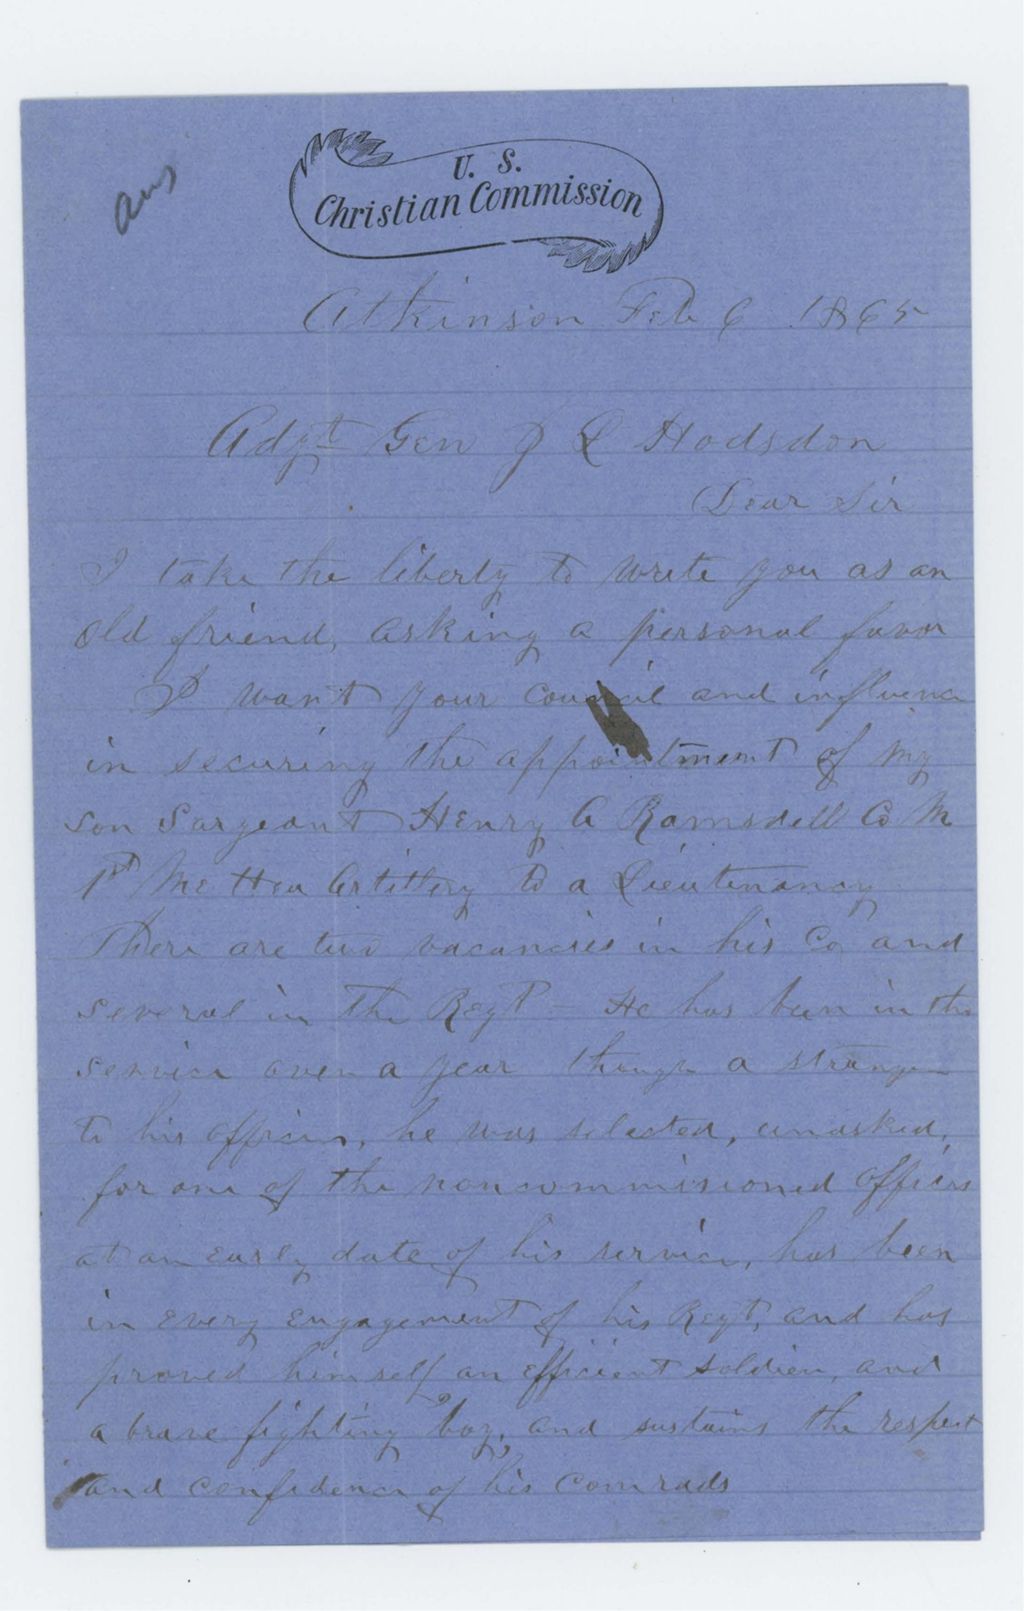 ans
U. S.
Christian Commission
Atkinson Feb 6 1865
Adgt Gen J L Hodsdon
Dear Sir
I take the liberty to write you as an
old friend, asking a personal favor
I want your council and influence
in securing the appointment of my
son Sargeant Henry A Ramsdell Co M
1st Me Hea Artillery to a Lieutenancy
There are two vacancies in his Co and
several in the Regt - He has been in the
service over a year though a stranger
to his officers, he was selected, unasked,
for one of the noncommissioned officers
at an early date of his service, has been
in every engagement of his Regt, and has
proved himself an efficient soldier, and
a brave fighting boy, and sustains the respect
and confidence of his comrads